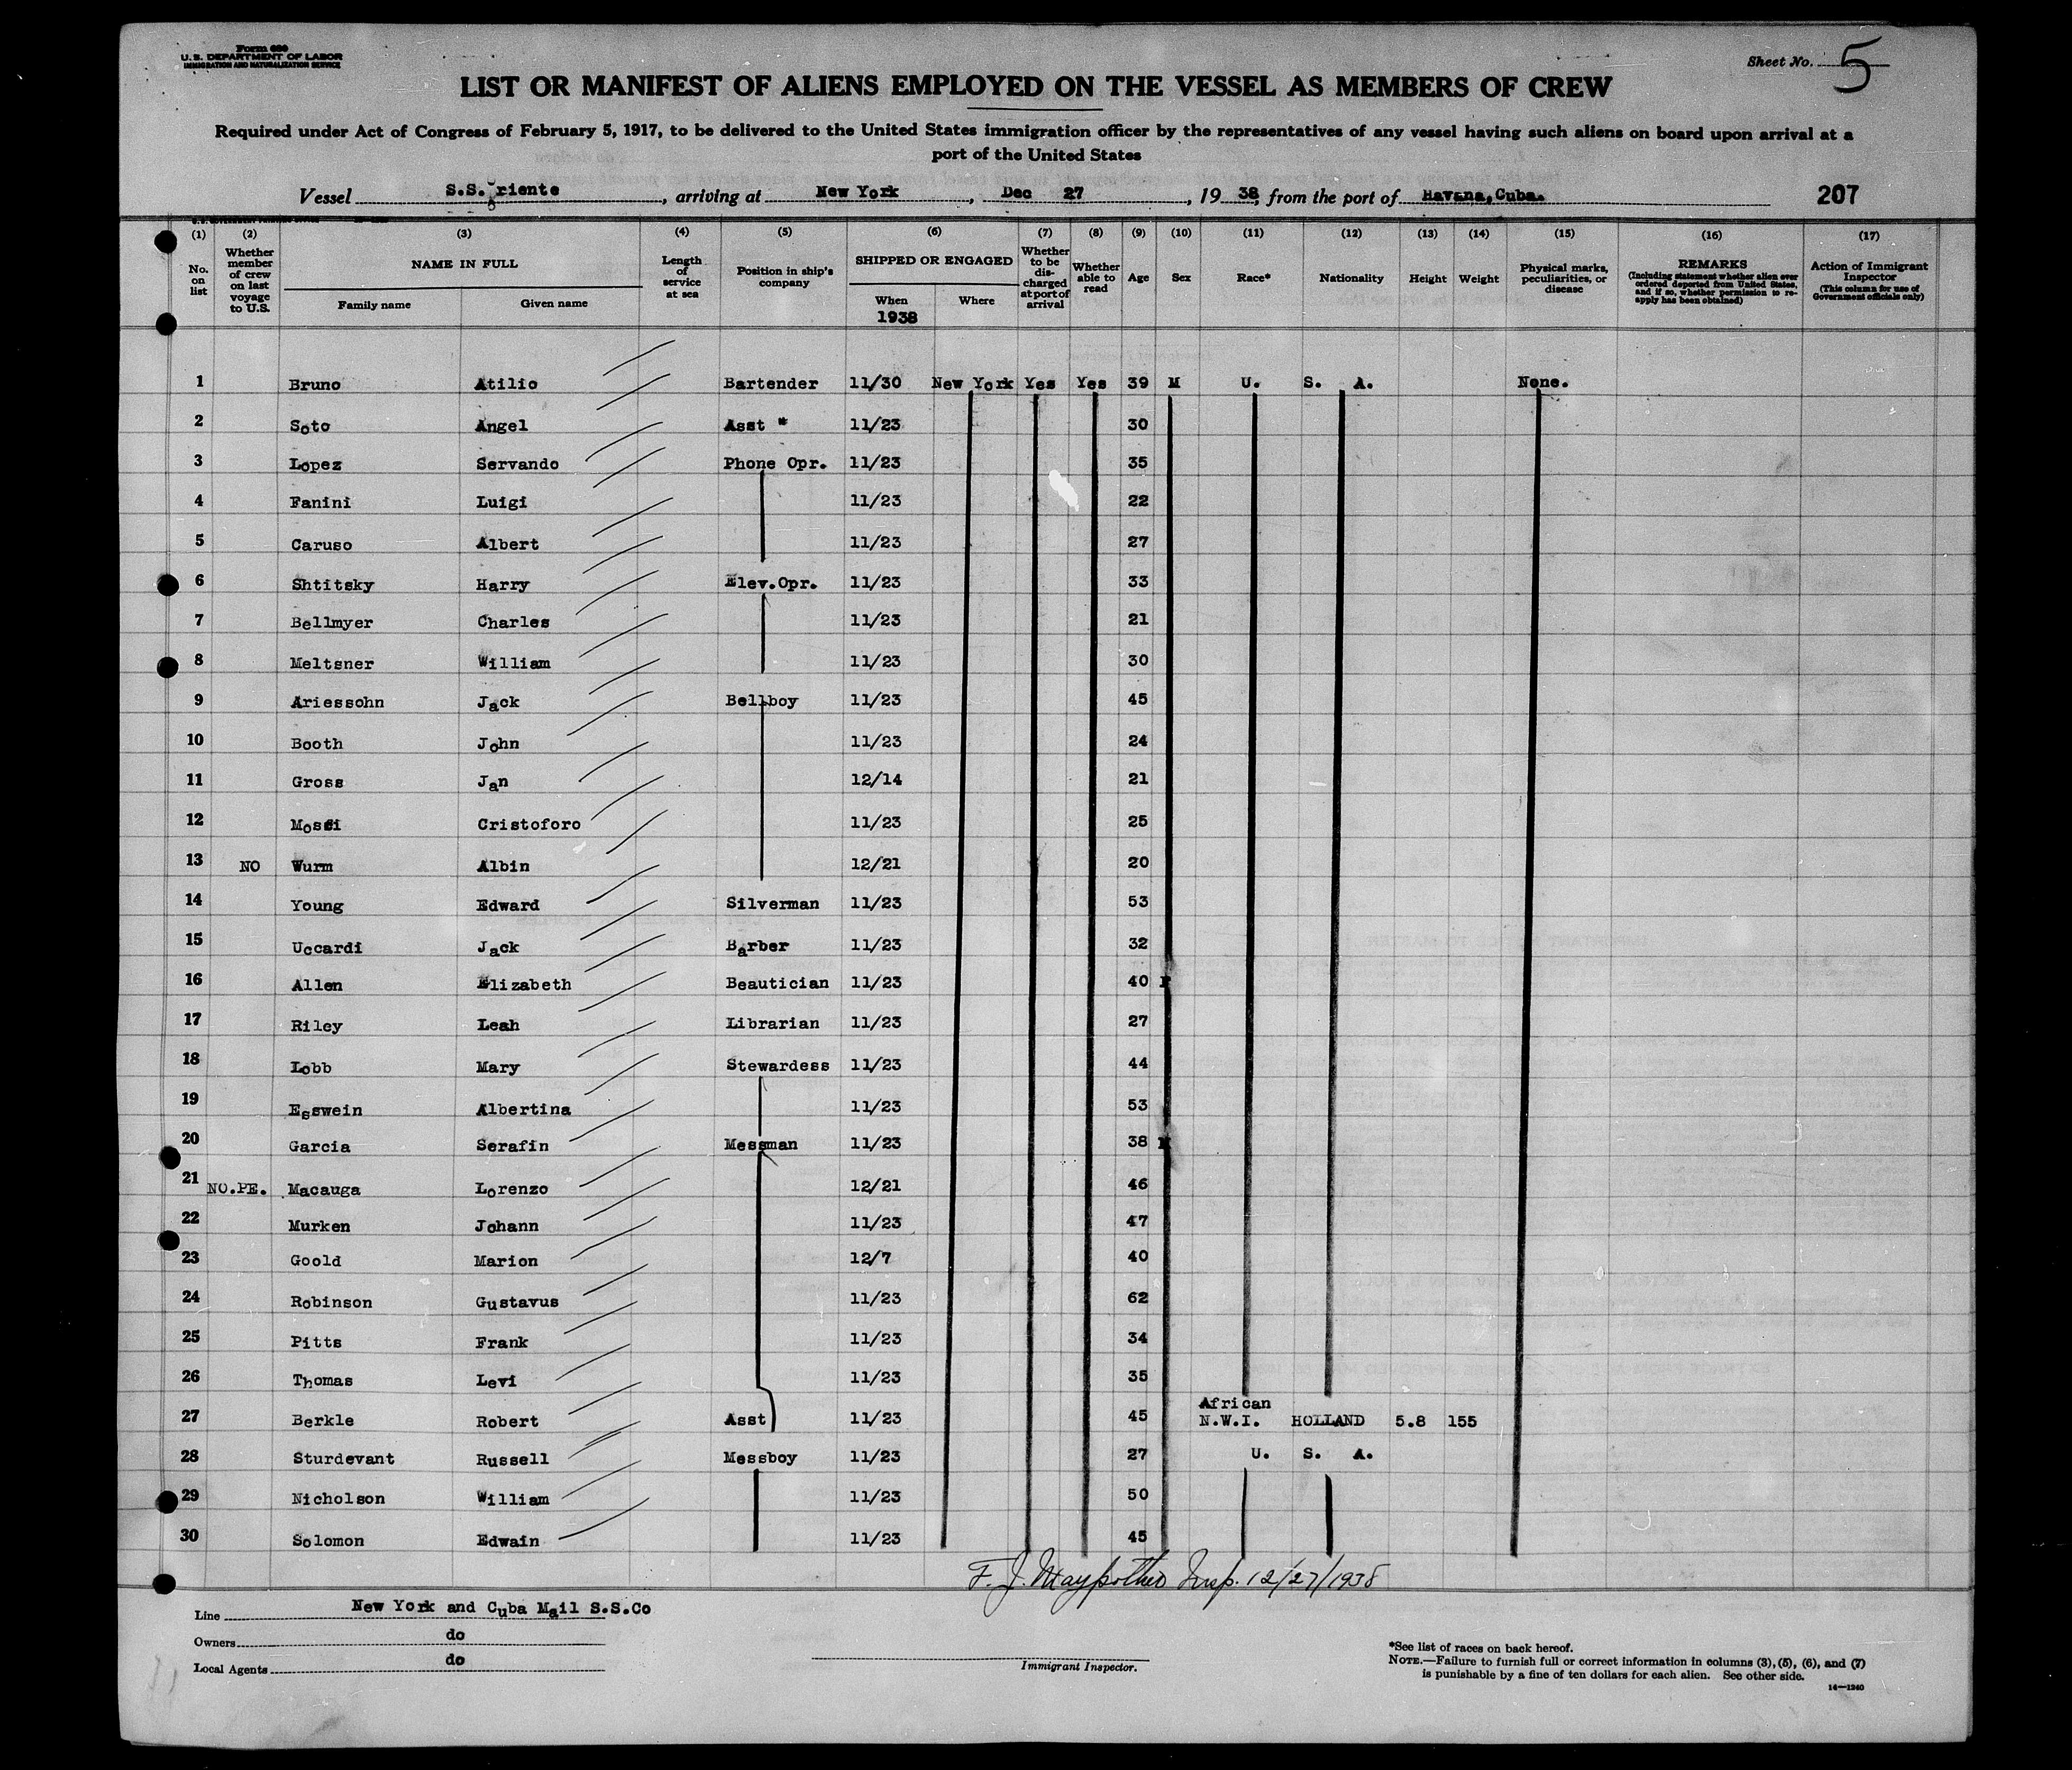 Form 680
U. S. DEPARTMENT OF LABOR
IMMIGRATION AND NATURALIZATION SERVICE
Sheet No. 5
LIST OR MANIFEST OF ALIENS EMPLOYED ON THE VESSEL AS MEMBERS OF CREW
Required under Act of Congress of February 5, 1917, to be delivered to the United States immigration officer by the representatives of any vessel having such aliens on board upon arrival at a
port of the United States
Vessel S.S. Oriente, arriving at New York, Dec 27, 1938, from the port of Havana, Cuba. 207
(1) (2) (3) (4) (5) (6) (7) (8) (9) (10) (11) (12) (13) (14) (15) (16) (17)
No. on list Whether member of crew on last voyage to U.S. NAME IN FULL Family name Given name Length of service at sea Position in ship's company SHIPPED OR ENGAGED When 1938 Where Whether to be discharged at port of arrival Whether able to read Age Sex Race* Nationality Height Weight Physical marks, peculiarities, or disease REMARKS (Including statement whether alien ever ordered deported from United States, and if so, whether permission to reapply has been obtained) Action of Immigrant Inspector (This column for use of Government officials only)
1 Bruno Atilio Bartender 11/30 New York Yes Yes 39 M U. S. A. None.
2 Soto Angel Asst " 11/23 30
3 Lopez Servando Phone Opr. 11/23 35
4 Fanini Luigi 11/23 22
5 Caruso Albert 11/23 27
6 Shtitsky Harry Elev.Opr. 11/23 33
7 Bellmyer Charles 11/23 21
8 Meltsner William 11/23 30
9 Ariessohn Jack Bellboy 11/23 45
10 Booth John 11/23 24
11 Gross Jan 12/14 21
12 Mossi Cristoforo 11/23 25
13 NO Wurm Albin 12/21 20
14 Young Edward Silverman 11/23 53
15 Uccardi Jack Barber 11/23 32
16 Allen Elizabeth Beautician 11/23 40 F
17 Riley Leah Librarian 11/23 27
18 Lobb Mary Stewardess 11/23 44
19 Esswein Albertina 11/23 53
20 Garcia Serafin Messman 11/23 38 M
21 NO.PE. Macauga Lorenzo 12/21 46
22 Murken Johann 11/23 47
23 Goold Marion 12/7 40
24 Robinson Gustavus 11/23 62
25 Pitts Frank 11/23 34
26 Thomas Levi 11/23 35
African
27 Berkle Robert Asst 11/23 45 N.W.I. HOLLAND 5.8 155
28 Sturdevant Russell Messboy 11/23 27 U. S. A.
29 Nicholson William 11/23 50
30 Solomon Edwain 11/23 45
F. J. Insp. 12/27/1938
Line New York and Cuba Mail S.S.Co
Owners do
Local Agents do
Immigrant Inspector.
*See list of races on back hereof.
NOTE.—Failure to furnish full or correct information in columns (3), (5), (6), and (7)
is punishable by a fine of ten dollars for each alien. See other side.
14—1240